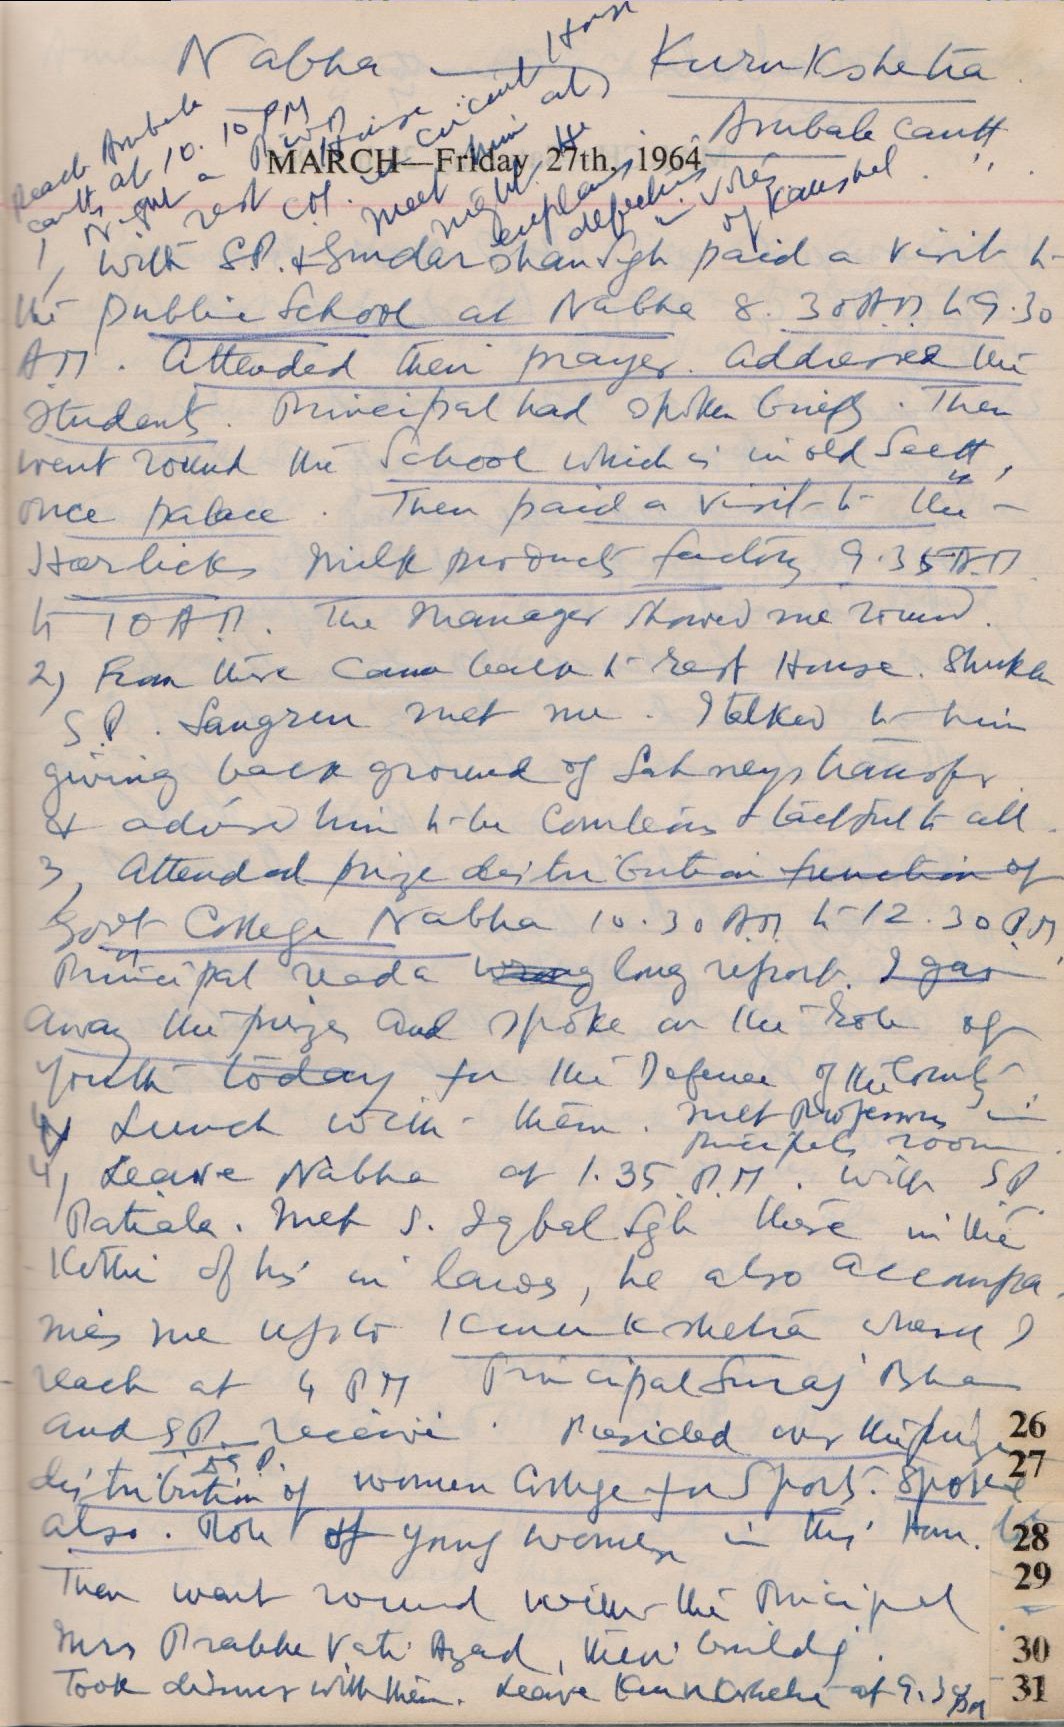 Nabha — Kurukshetra
Ambala Cantt
MARCH—Friday 27th, 1964
Reach Ambala
Cantt at 10.10 PM
Night
rest House
meet him at
night. He
explains
defections
in views
of Kaushal.
1, With S.P. & Sudarshan Sgh paid a visit to
the public School at Nabha 8.30 AM to 9.30
AM. Attended their prayer. Addressed the
students. Principal had spoken briefly. Then
went round the School which is in old
once palace. Then paid a visit to the
Horlicks Milk products factory 9.35 AM
to 10 AM. The Manager showed me round.
2, From there came back to Rest House. Shukla
S.P. Sangrur met me. I talked to him
giving back ground of Sahneys transfer
& advised him to be Courteous & tactful to all.
3, Attended prize distribution function of
Govt College Nabha 10.30 AM to 12.30 P.M
Principal read a wrong long report. I gave
away the prizes and spoke on the role of
youth today for the Defence of the Country
Lunch with them. Met Professors in
Principals room.
4, Leave Nabha at 1.35 P.M. with SP
Patiala. Met S. Iqbal Sgh there in the
Kothi of his in laws, he also accompa
nies me upto Kurukshetra where I
reach at 4 PM Principal Suraj Bhan
and SP receive. Presided over the prize
D.S.P.
distribution of women College for Sports. Spoke
also. Role of young women in this
Then went round with the Principal
Mrs Prabha Vati Azad, their buildg.
Took dinner with them. Leave Kurukshetra at 9.30 PM
26
27
28
29
30
31